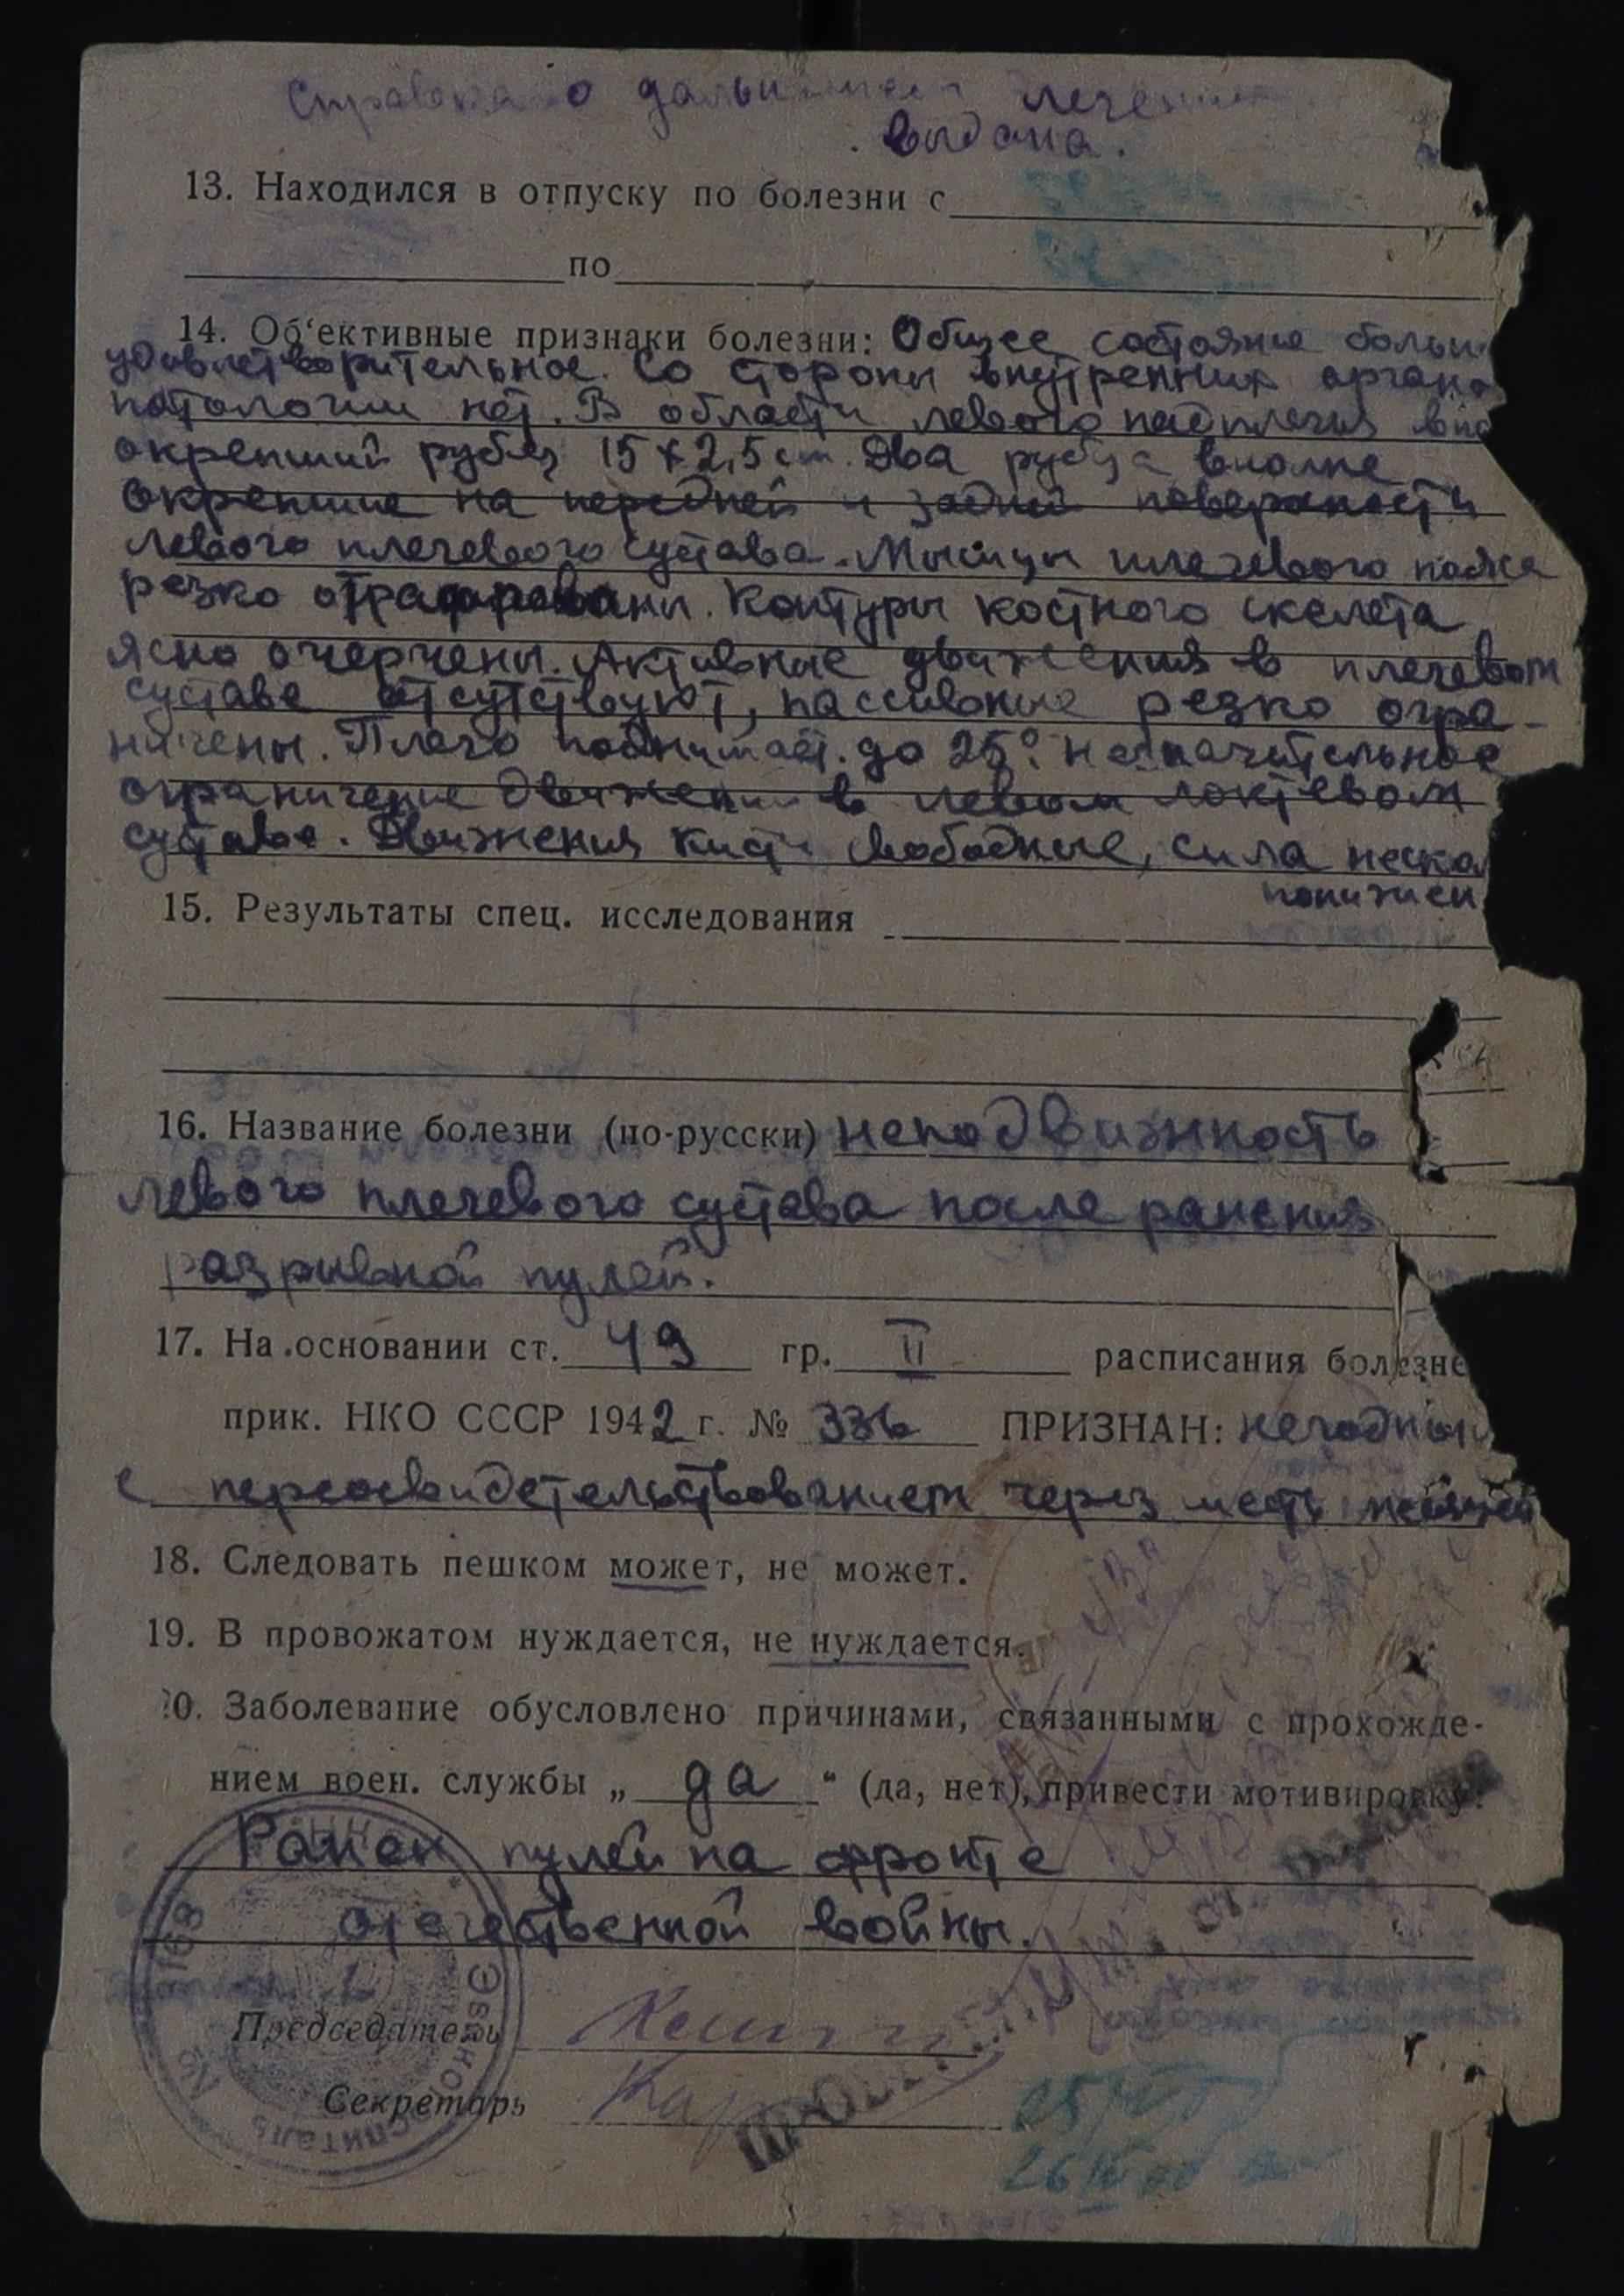 Справка о дальнейшем лечении
выдана.
13. Находился в отпуску по болезни с
по
14. Об'ективные признаки болезни: Общее состояние больн
удовлетворительное. Со стороны внутренних органо
патологии нет. В области левого надплечья впо
окрепший рубец 15 х 2,5 см. Два рубца вполне
окрепшие на передней и задней поверхности
левого плечевого сустава. Мышцы плечевого пояса
резко атрафированы. Контуры костного скелета
ясно очерчены. Активные движения в плечевом
суставе отсутствуют, пассивные резко огра-
ничены. Плечо поднимает до 25°. Незначительное
ограничение движений в левом локтевом
суставе. Движения кисти свободные, сила неско
понижен
15. Результаты спец. исследования
16. Название болезни (по-русски) неподвижность
левого плечевого сустава после ранения
разрывной пулей.
17. На основании ст. 49 гр. II расписания болезне
прик. НКО СССР 1942 г. № 336 ПРИЗНАН: негодным
с переосвидетельствованием через шесть месяцев
18. Следовать пешком может, не может.
19. В провожатом нуждается, не нуждается.
20. Заболевание обусловлено причинами, связанными с прохожде-
нием воен. службы „ да “ (да, нет), привести мотивировку:
Ранен пулей на фронте
отечественной войны.
Председатель
Секретарь
Эвакогоспиталь №